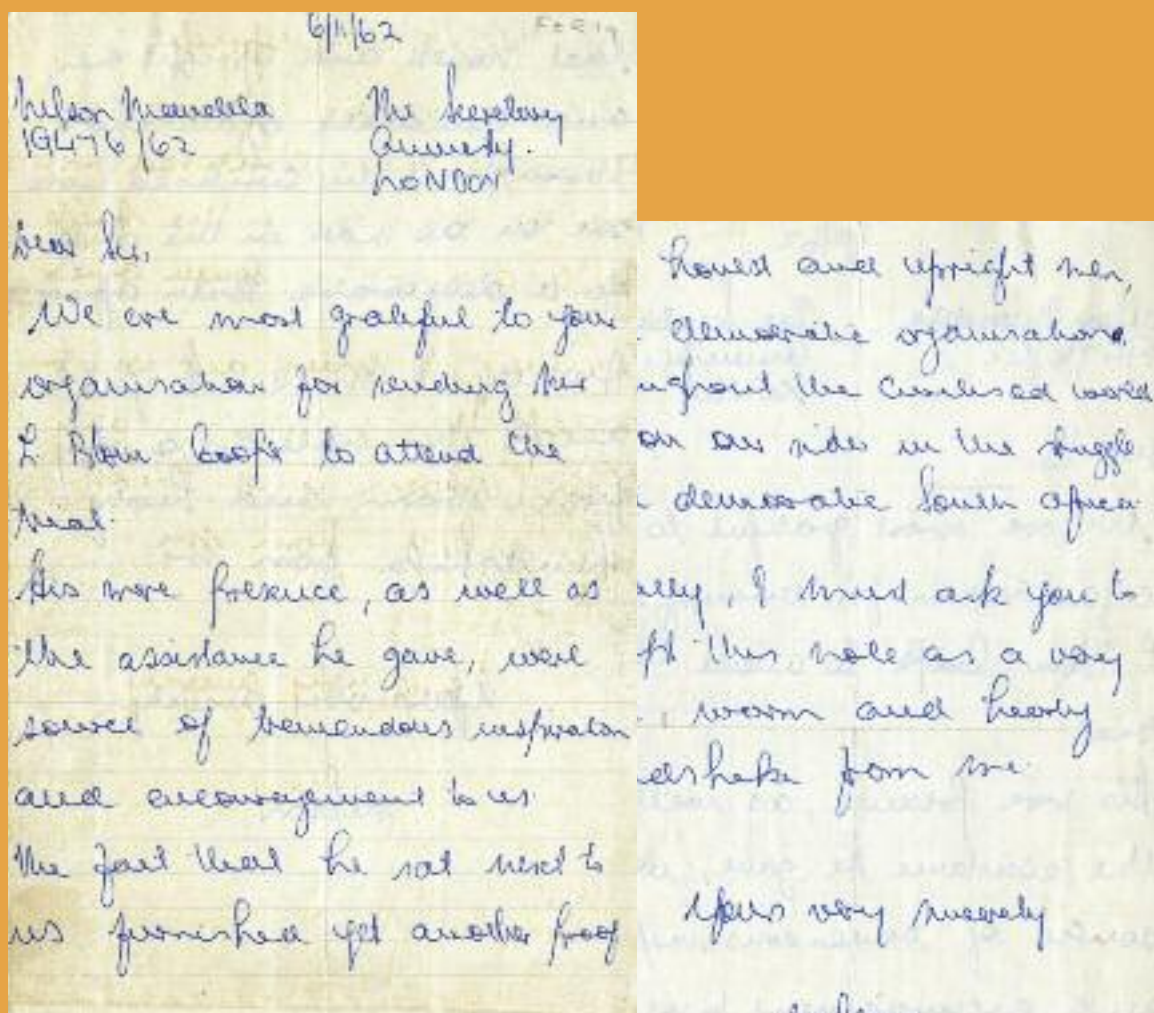 6/11/62
Nelson Mandela
19476/62
The Secretary
Amnesty.
LONDON
Dear Sir,
We are most grateful to your
organisation for sending Mr
L Blom Cooper to attend the
trial.
His mere presence, as well as
the assistance he gave, were
source of tremendous inspiration
and encouragement to us.
The fact that he sat next to
us furnished yet another proof
honest and upright men,
democratic organisations
ughout the civilised world
on our side in the struggle
democratic South Africa.
ally, I must ask you to
pt this note as a very
, warm and hearty
dshake from me.
Yours very sincerely